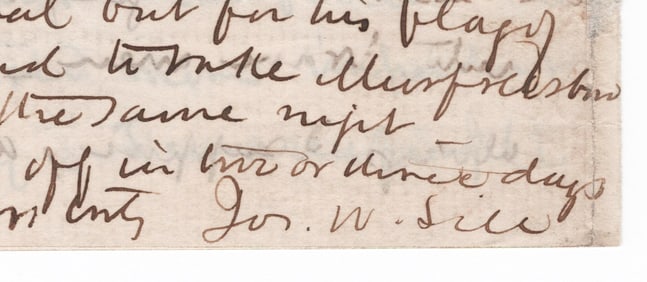 but for his flag of
to take Murfreesboro
the same night
off in two or three days
Jos. W. Sill